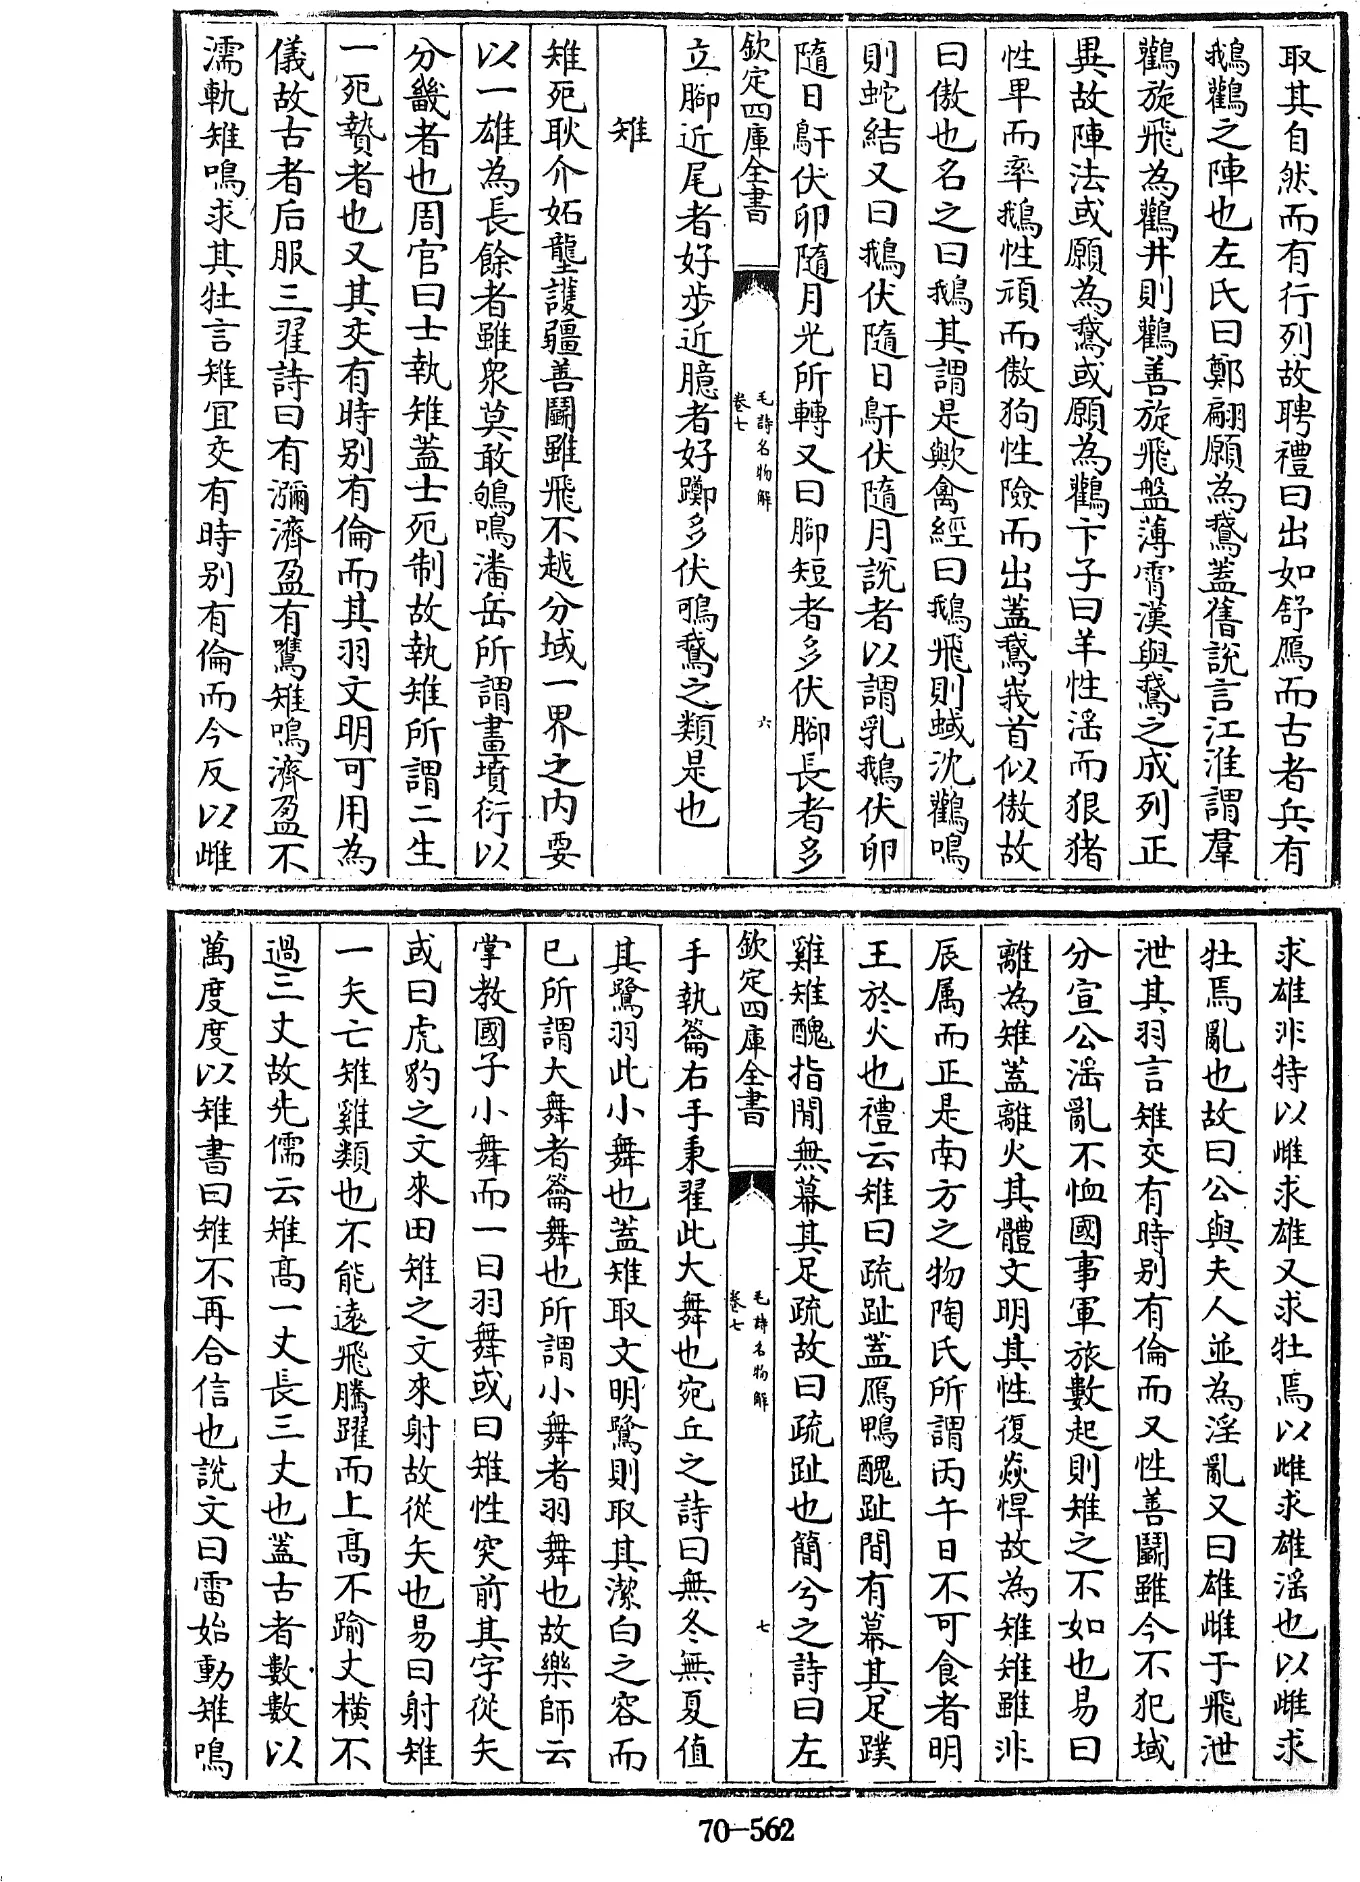 取其自然而有行列故聘禮曰出如舒鴈而古者兵有
鵝鸛之陣也左氏曰鄭翩願為鵞蓋舊說言江淮謂羣
鸛旋飛為鸛井則鸛善旋飛盤薄霄漢與鵞之成列正
異故陣法或願為鵞或願為鸛卞子曰羊性淫而狠猪
性卑而率鵝性頑而傲狗性險而出蓋鵞峩首似傲故
曰傲也名之曰鵝其謂是歟禽經曰鵝飛則蜮沈鸛鳴
則蛇結又曰鵝伏隨日鳱伏隨月說者以謂乳鵝伏卵
隨日鳱伏卵隨月光所轉又曰腳短者多伏腳長者多
欽定四庫全書
毛詩名物解
卷七
六
立腳近尾者好步近臆者好躑多伏鴨鵞之類是也
雉
雉死耿介妬壟護疆善鬭雖飛不越分域一界之内要
以一雄為長餘者雖衆莫敢鴝鳴潘岳所謂畫墳衍以
分畿者也周官曰士執雉蓋士死制故執雉所謂二生
一死贄者也又其交有時别有倫而其羽文明可用為
儀故古者后服三翟詩曰有瀰濟盈有鷕雉鳴濟盈不
濡軌雉鳴求其牡言雉宜交有時别有倫而今反以雌
求雄非特以雌求雄又求牡焉以雌求雄淫也以雌求
牡焉亂也故曰公與夫人並為淫亂又曰雄雌于飛泄
泄其羽言雉交有時别有倫而又性善鬭雖今不犯域
分宣公淫亂不恤國事軍旅數起則雉之不如也易曰
離為雉蓋離火其體文明其性復焱悍故為雉雉雖非
辰属而正是南方之物陶氏所謂丙午日不可食者明
王於火也禮云雉曰疏趾蓋鴈鴨醜趾間有幕其足蹼
雞雉醜指間無幕其足疏故曰疏趾也簡兮之詩曰左
欽定四庫全書
毛詩名物解
卷七
七
手執籥右手秉翟此大舞也宛丘之詩曰無冬無夏值
其鷺羽此小舞也蓋雉取文明鷺則取其潔白之容而
已所謂大舞者籥舞也所謂小舞者羽舞也故樂師云
掌教國子小舞而一曰羽舞或曰雉性突前其字從矢
或曰虎豹之文來田雉之文來射故從矢也易曰射雉
一矢亡雉雞類也不能遠飛騰躍而上高不踰丈横不
過三丈故先儒云雉高一丈長三丈也蓋古者數數以
萬度度以雉書曰雉不再合信也說文曰雷始動雉鳴
70-562